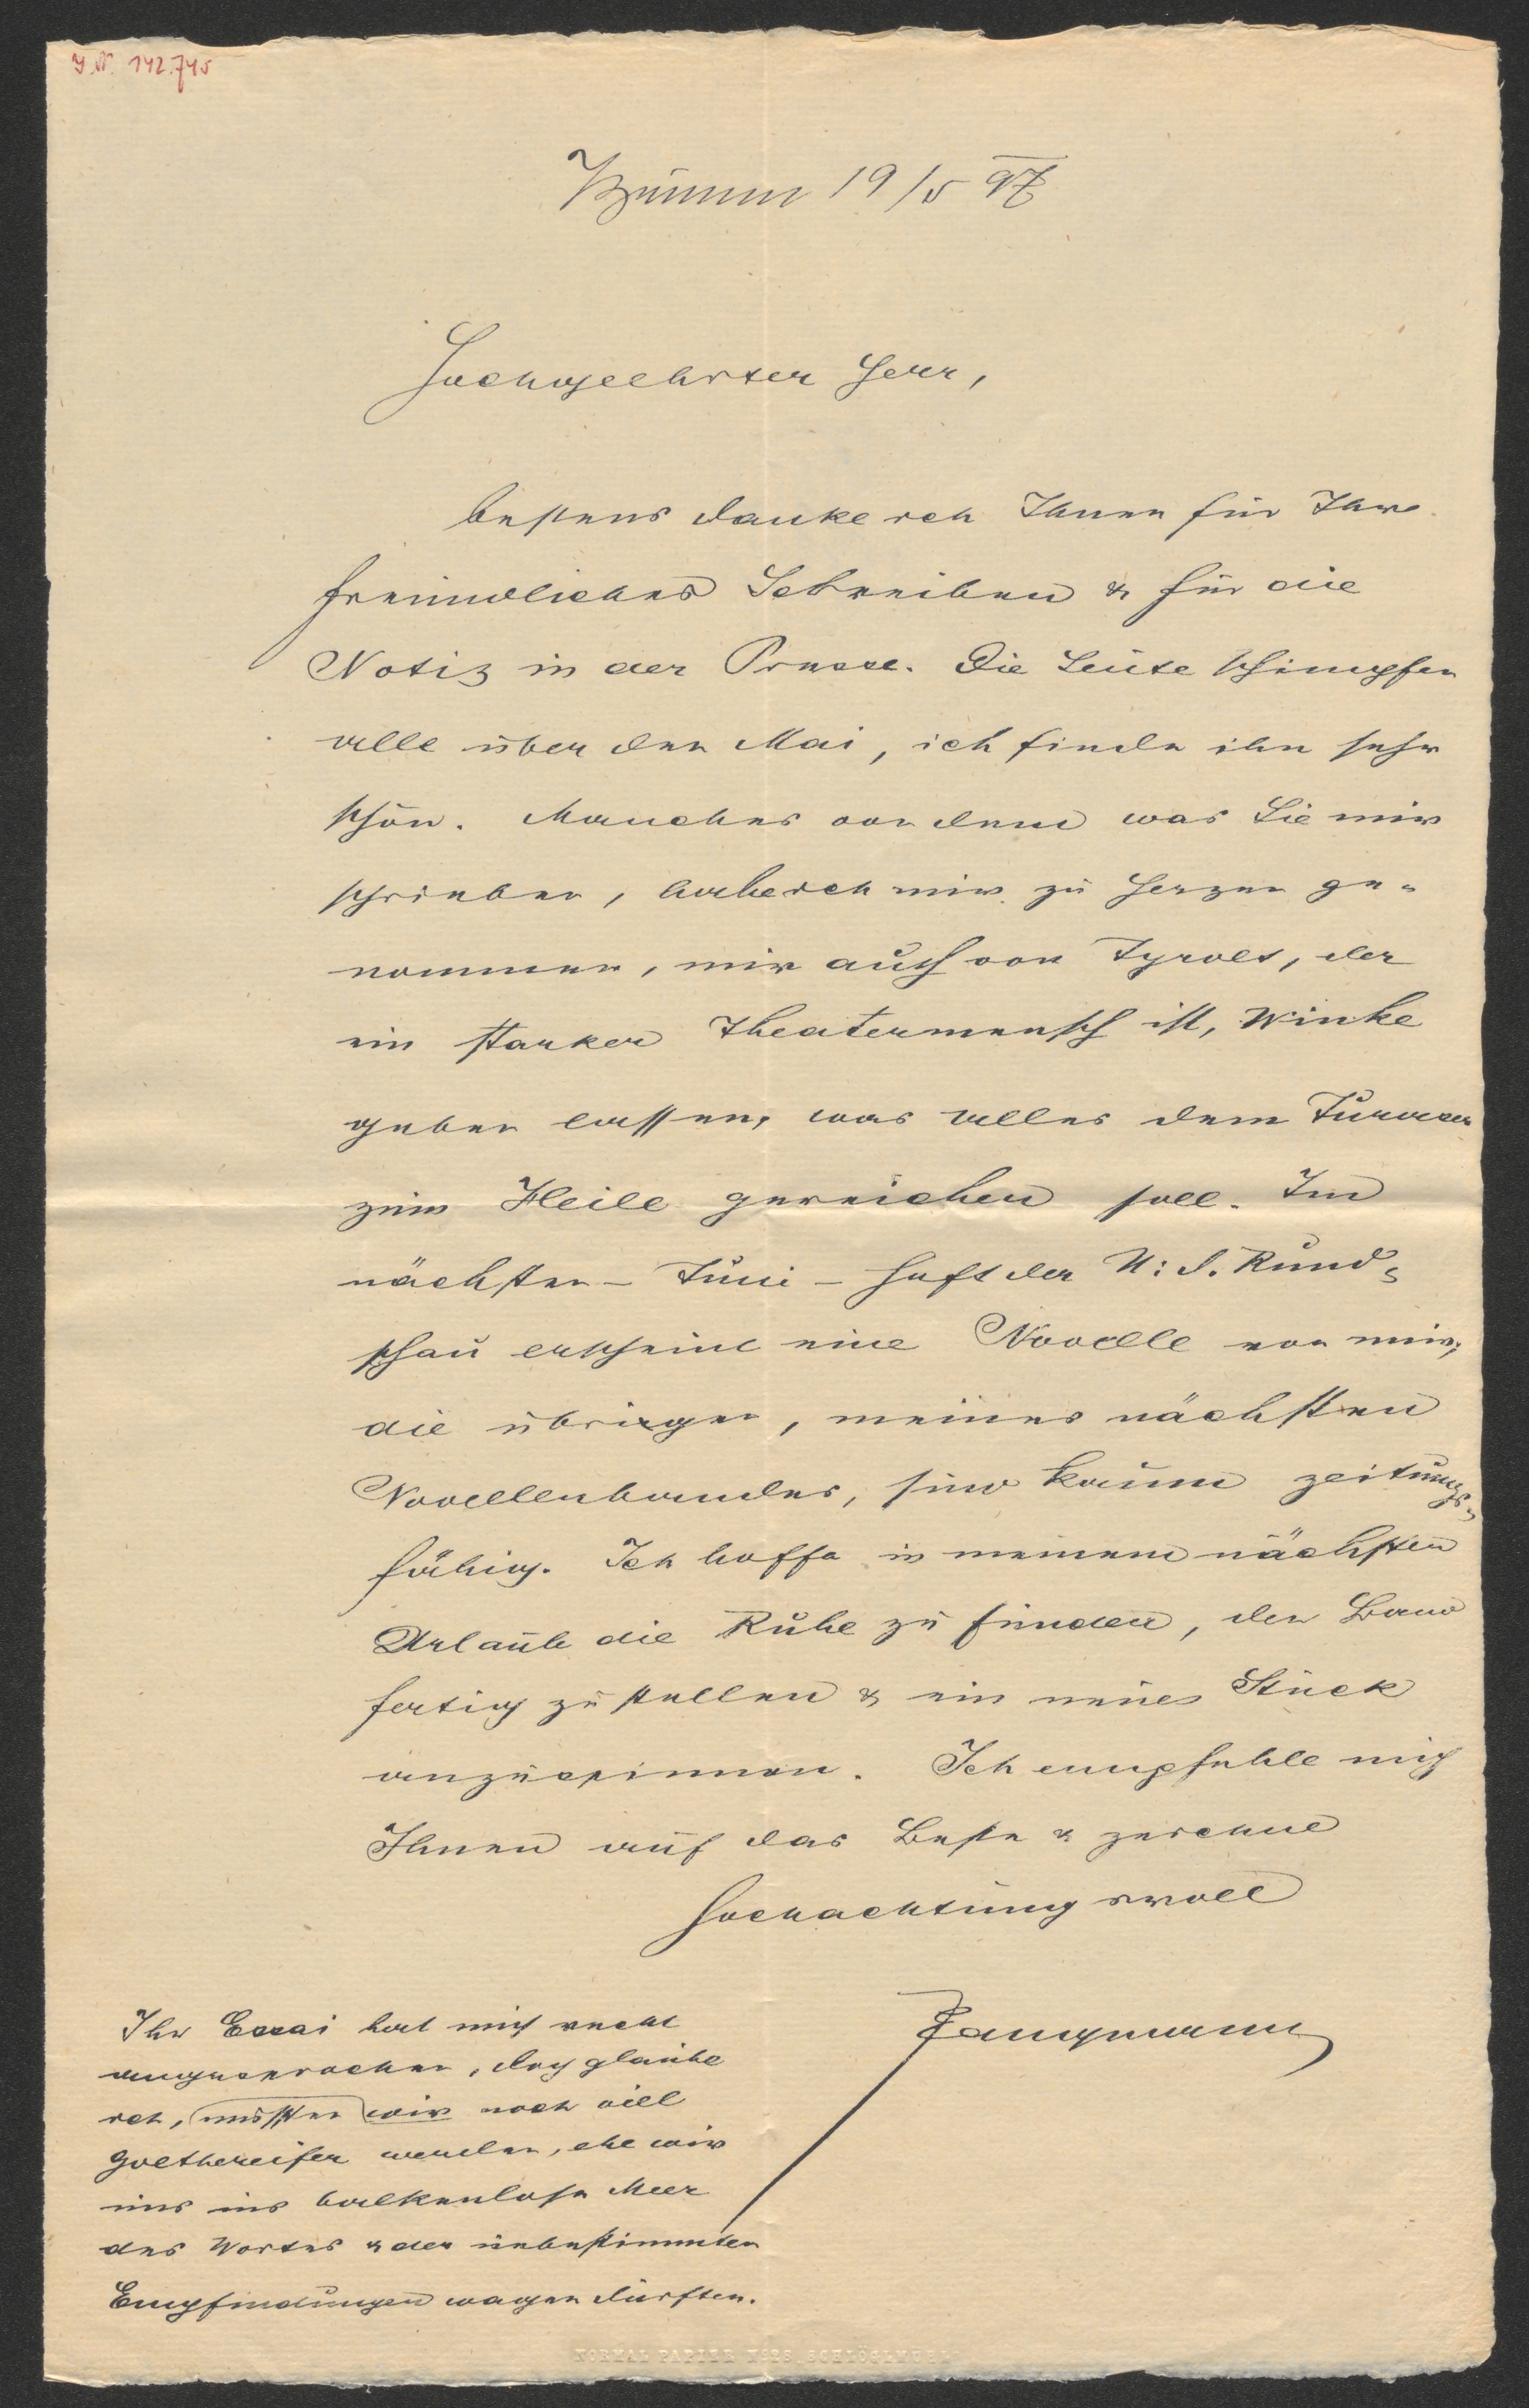 J.N. 142.745
Brünn 19/5 97
Hochgeehrter Herr,
bestens danke ich Ihnen für Ihr
freundliches Schreiben & für die
Notiz in der Presse. Die Leute schimpfen
alle über den Mai, ich finde ihn sehr
schön. Manches von dem was Sie mir
schrieben, habe ich mir zu Herzen ge-
nommen, mir auch von Tyrolt, der
ein starker Theatermensch ist, Winke
geben lassen, was alles dem
zum Heile gereichen soll. Im
nächsten - Juni - Heft der N: d. Rund-
schau erscheint eine Novelle von mir,
die übrigen, meines nächsten
Novellenbandes, sind kaum zeitungs-
fähig. Ich hoffe in meinem nächsten
Urlaub die Ruhe zu finden, den Band
fertig zu stellen & ein neues Stück
anzuspinnen. Ich empfehle mich
Ihnen auf das Beste & zeichne
hochachtungsvoll
Langmann
Ihr Essai hat mich recht
angesprochen, doch glaube
ich, müssten wir noch viel
goethereifer werden, ehe wir
uns ins balkenlose Meer
des Wortes & der unbestimmten
Empfindungen wagen dürften.
NORMAL PAPIER SCHLÖGLMÜHL